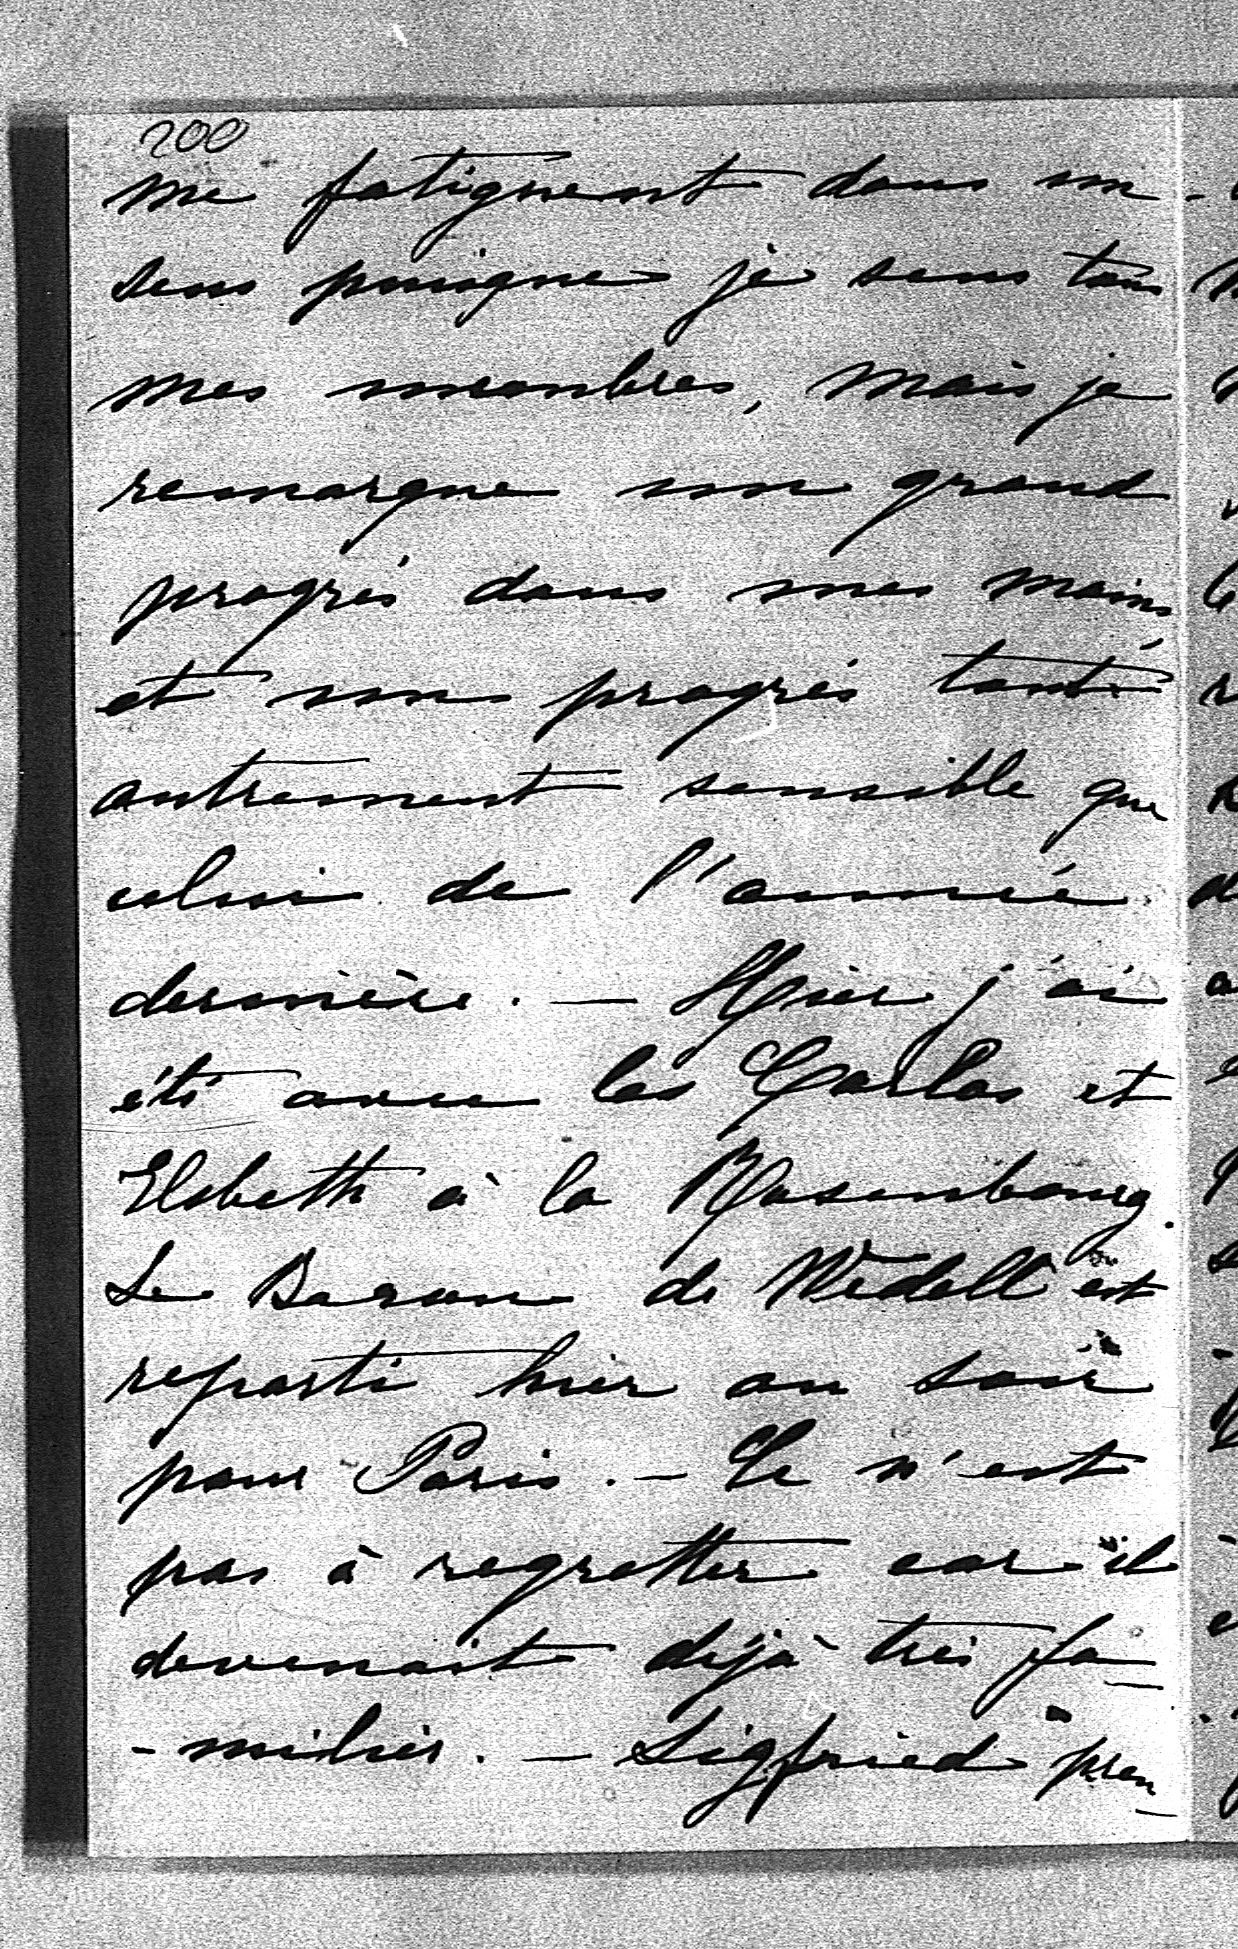 200
me fatiguent dans un
sens puisque je sens tous
mes membres, mais je
remarque un grand
progrès dans mes mains
et un progrès tout
autrement sensible que
celui de l'année
dernière. — Hier j'ai
été avec les Carlos et
Elsbeth à la Rosenbourg.
Le Baron de Wedell est
reparti hier au soir
pour Paris. — Ce n'est
pas à regretter car il
devenait déjà très fa-
-milier. — Sigfried pren-